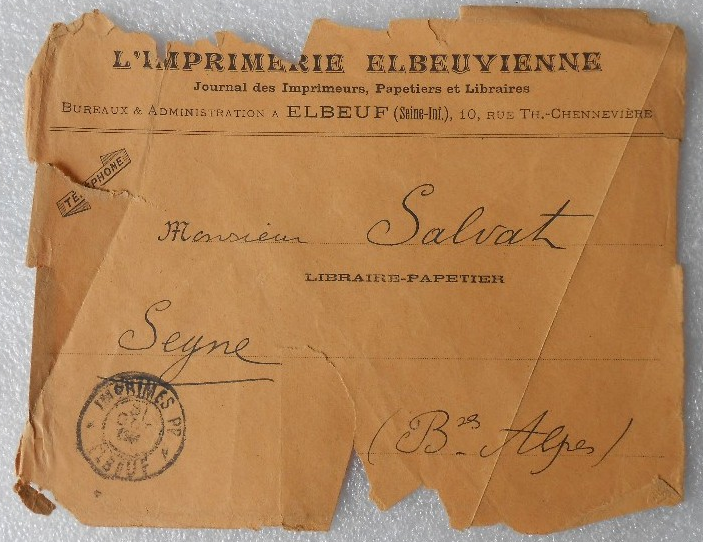 L'IMPRIMERIE ELBEUVIENNE
Journal des Imprimeurs, Papetiers et Libraires
BUREAUX & ADMINISTRATION A ELBEUF (Seine-Inf.), 10, RUE TH.-CHENNEVIÈRE
TÉLÉPHONE
Monsieur Salvat
LIBRAIRE-PAPETIER
Seyne
(Bses Alpes)
IMPRIMES PP
ELBEUF